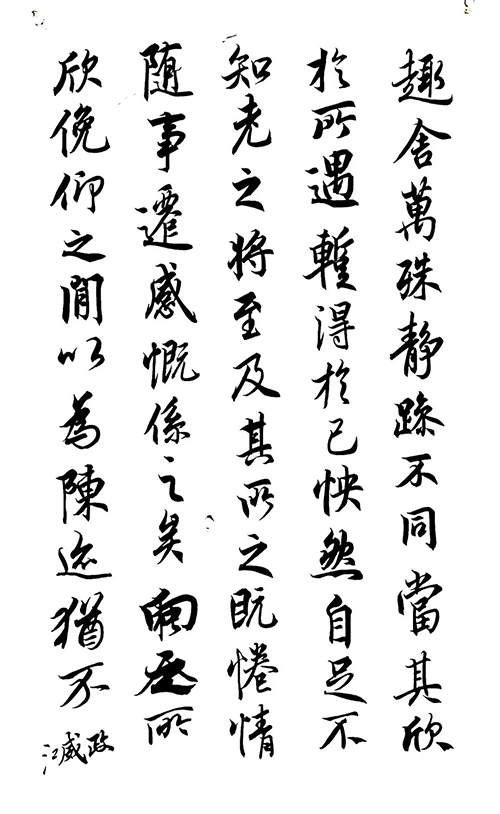 趣舍萬殊静躁不同當其欣
於所遇暫得於己怏然自足不
知老之将至及其所之既惓情
随事遷感慨係之矣向之所
欣俛仰之閒以為陳迹猶不
江威政